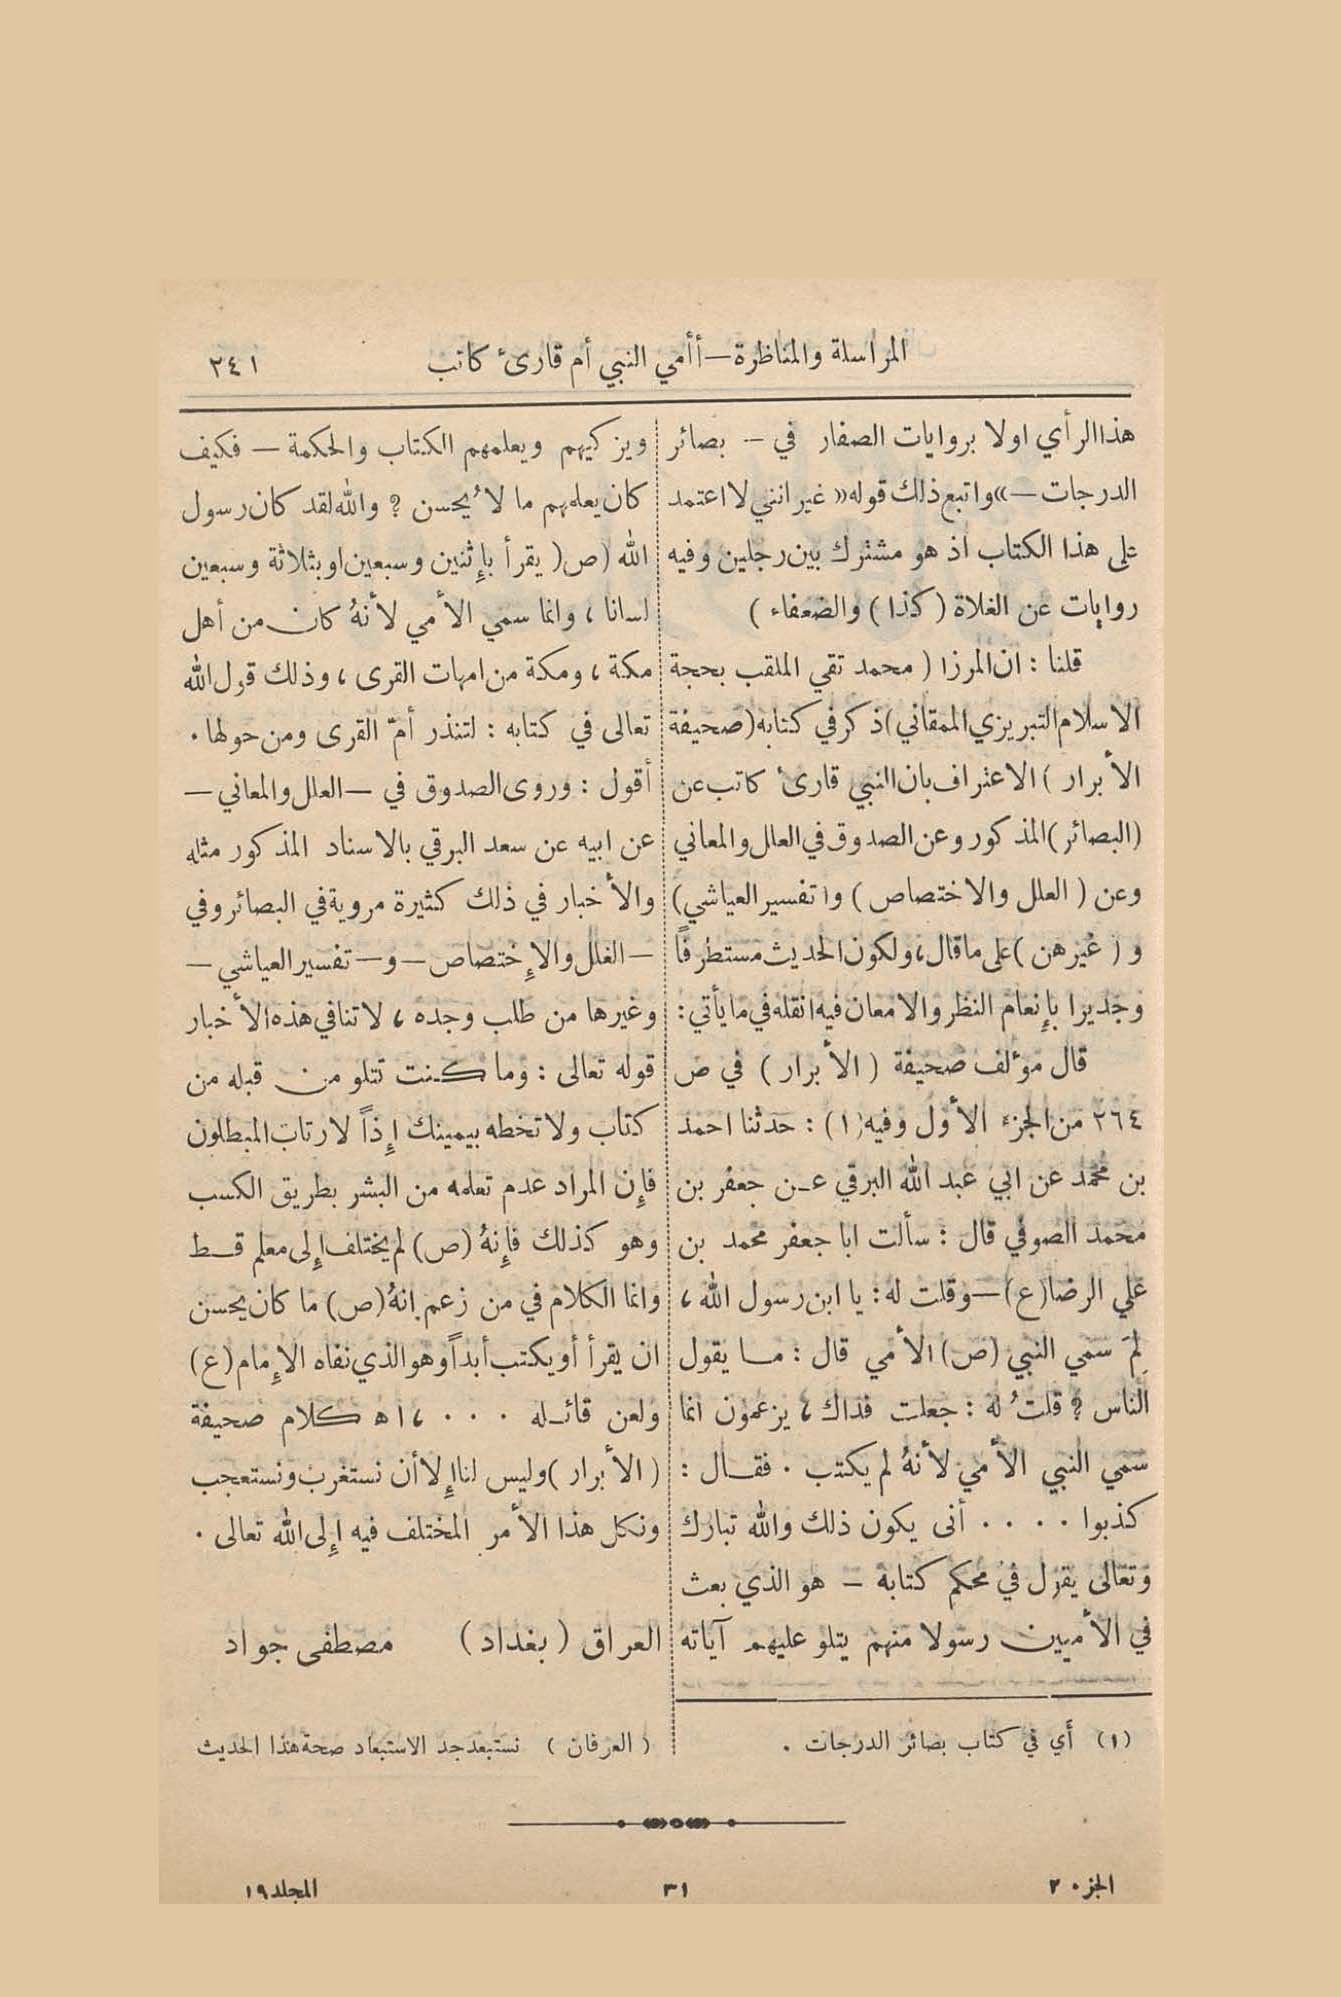 المراسلة والمناظرة — أأمي النبي أم قارئ كاتب
٢٤١
هذا الرأي اولا بروايات الصفار في — بصائر
الدرجات —» واتبع ذلك قوله « غير انني لا اعتمد
على هذا الكتاب اذ هو مشترك بين رجلين وفيه
روايات عن الغلاة ( كذا ) والضعفاء )
قلنا : ان المرزا ( محمد تقي الملقب بحجة
الاسلام التبريزي الممقاني ) ذكر في كتابه ( صحيفة
الأبرار ) الاعتراف بان النبي قارئ كاتب عن
( البصائر ) المذكور وعن الصدوق في العلل والمعاني
وعن ( العلل والاختصاص ) و ( تفسير العياشي )
و ( غيرهن ) على ما قال ، ولكون الحديث مستطرفاً
وجديرا بإنعام النظر والامعان فيه انقله في ما يأتي :
قال مؤلف صحيفة ( الأبرار ) في ص
٢٦٤ من الجزء الأول وفيه (١) : حدثنا احمد
بن محمد عن ابي عبد الله البرقي عن جعفر بن
محمد الصوفي قال : سألت ابا جعفر محمد بن
علي الرضا (ع) — وقلت له : يا ابن رسول الله ،
لِمَ سمي النبي (ص) الأمي قال : ما يقول
الناس ؟ قلتُ له : جعلت فداك ، يزعمون انما
سمي النبي الأمي لأنهُ لم يكتب . فقال :
كذبوا . . . . أنى يكون ذلك والله تبارك
وتعالى يقول في محكم كتابه — هو الذي بعث
في الأميين رسولا منهم يتلو عليهم آياته
(١) أي في كتاب بصائر الدرجات .
ويزكيهم ويعلمهم الكتاب والحكمة — فكيف
كان يعلمهم ما لا يُحسن ؟ والله لقد كان رسول
الله (ص( يقرأ بإثنين وسبعين او بثلاثة وسبعين
لسانا ، وانما سمي الأمي لأنهُ كان من أهل
مكة ، ومكة من امهات القرى ، وذلك قول الله
تعالى في كتابه : لتنذر أمّ القرى ومن حولها .
أقول : وروى الصدوق في — العلل والمعاني —
عن ابيه عن سعد البرقي بالاسناد المذكور مثله
والأخبار في ذلك كثيرة مروية في البصائر وفي
— العلل والإختصاص — و — تفسير العياشي —
وغيرها من طلب وجده ، لا تنافي هذه الأخبار
قوله تعالى : وما كنت تتلو من قبله من
كتاب ولا تخطه بيمينك إذاً لارتاب المبطلون
فإن المراد عدم تعلمه من البشر بطريق الكسب
وهو كذلك فإنهُ (ص) لم يختلف إلى معلم قط
وانما الكلام في من زعم انهُ (ص) ما كان يحسن
ان يقرأ أو يكتب أبداً وهو الذي نفاه الإمام (ع)
ولعن قائله . . . ، اه كلام صحيفة
( الأبرار ) وليس لنا إلا أن نستغرب ونستعجب
ونكل هذا الأمر المختلف فيه إلى الله تعالى .
العراق ( بغداد ) مصطفى جواد
( العرفان ) نستبعد جد الاستبعاد صحة هذا الحديث
الجزء ٢
٣١
المجلد ١٩